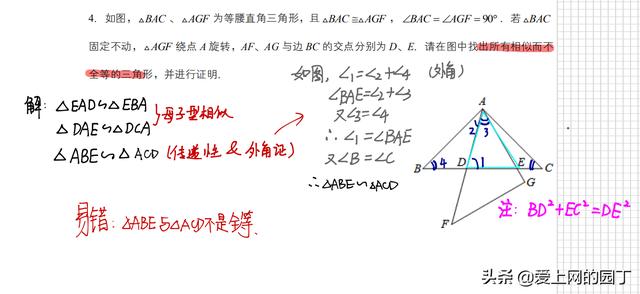 4. 如图，△BAC 、△AGF 为等腰直角三角形，且 △BAC≅△AGF ，∠BAC=∠AGF=90°．若 △BAC
固定不动，△AGF 绕点 A 旋转，AF、AG 与边 BC 的交点分别为 D、E. 请在图中找出所有相似而不
全等的三角形，并进行证明．
解: △EAD∽△EBA
△DAE∽△DCA
}母子型相似
△ABE∽△ACD (传递性 & 外角证)
易错: △ABE与△ACD不是全等.
如图, ∠1=∠2+∠4 (外角)
∠BAE=∠2+∠3
又∠3=∠4
∴∠1=∠BAE
又∠B=∠C
∴△ABE∽△ACD
A
2 3
B 4 D 1 E C
G
F
注: BD²+EC²=DE²
头条 @爱上网的园丁